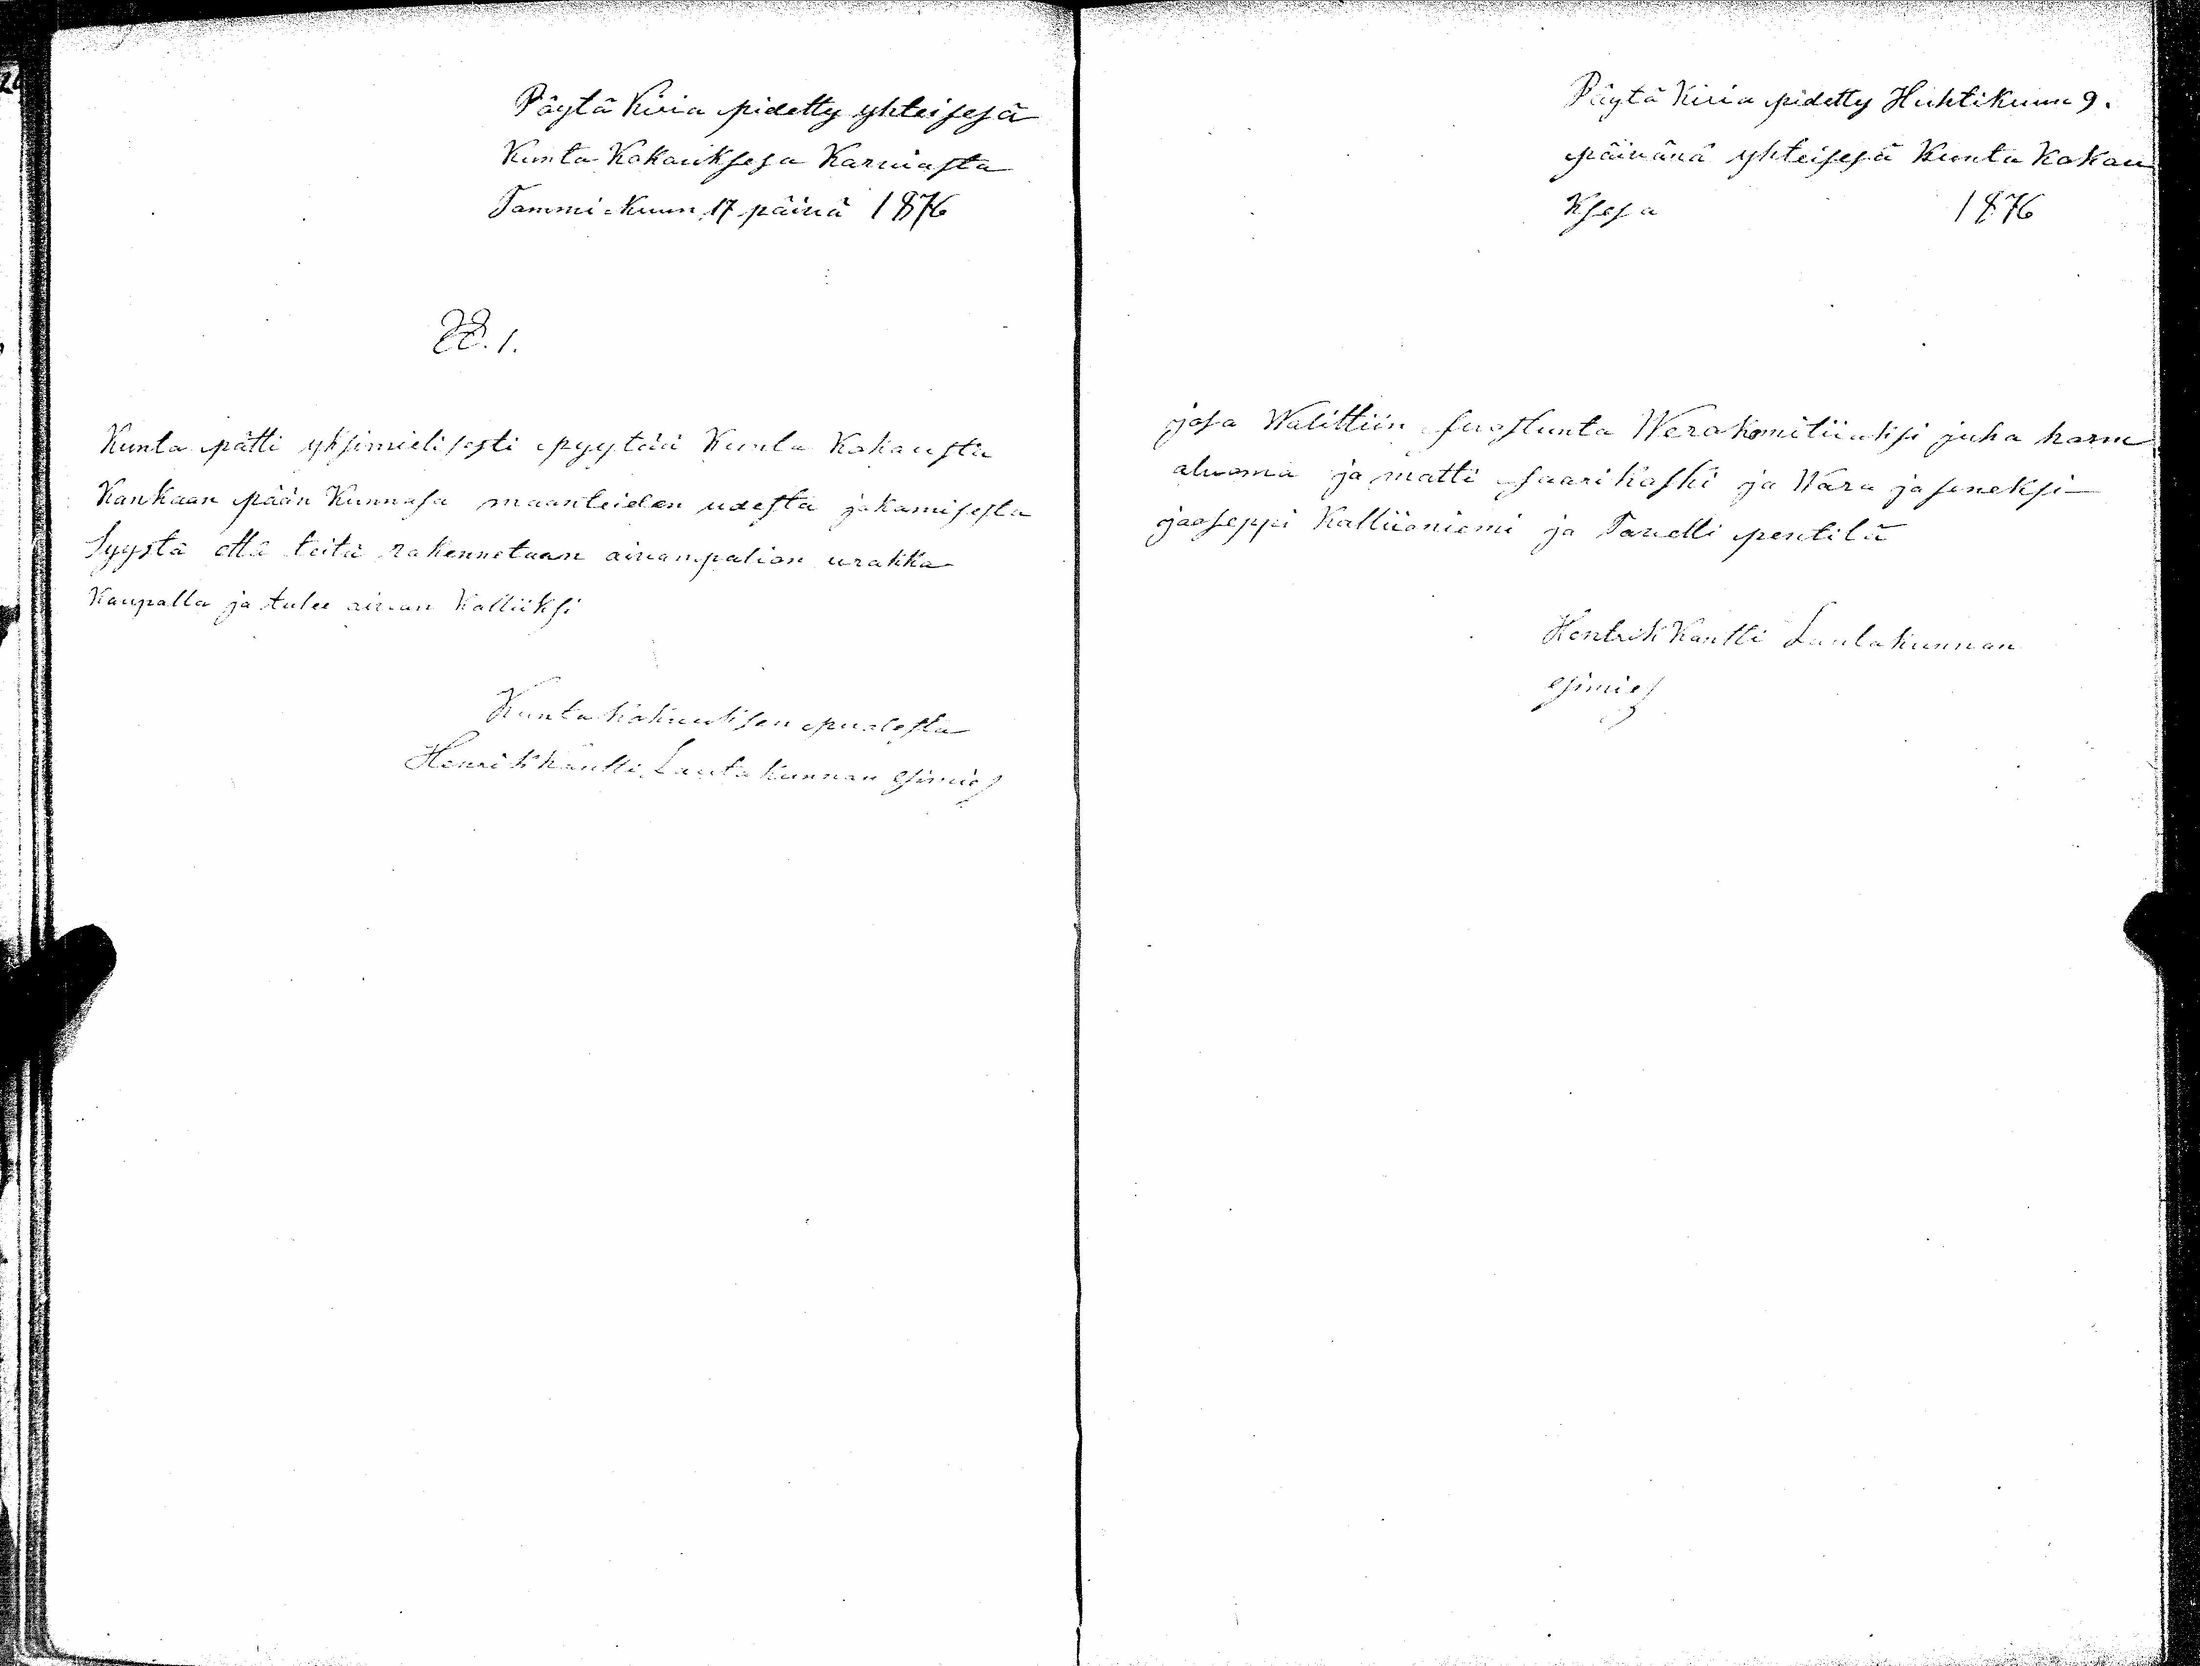 Päytä Kiria pidetty yhteisesä
Kunta Kokauksesa Karviasta
Tammi-Kuun 17 päivä 1876
§§. 1.
Kunta pätti yksimielisesti pyytää Kunta Kokausta
Kankaan pään Kunnasa maanteiden udesta jakamisesta
Syystä että teitä rakennetaan aivan palion urakka
Kaupalla ja tulee aivan Kalliiksi
Kunta Kokauksen puolesta
Henrik Kantti Lautakunnan esimies
Päytä Kiria pidetty Huhtikuun 9.
päivänä yhteisesä Kunta Kokau
Ksesa 1876
josa Walittiin suostunta Werakomitiiaksi juha harm
aluoma ja matti saarikoski ja Wara jaseneksi
jaaseppi Kalliioniemi ja Tanelli pentilä
Hentrik Kantti Lautakunnan
esimies